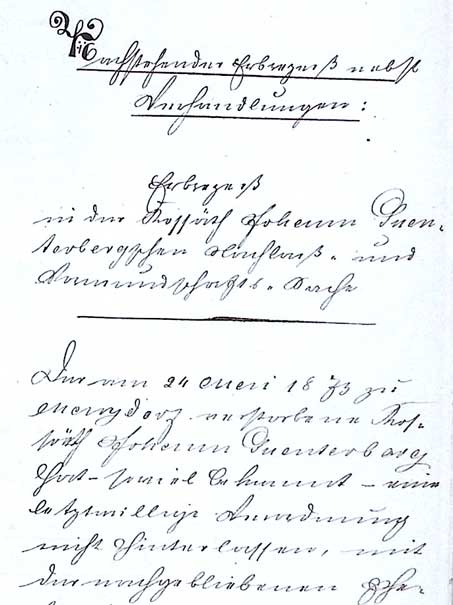 Nachstehender Erbrezeß nebst
Verhandlungen:
Erbrezeß
in der Kossäth Johann Guen-
terbergschen Nachlaß- und
Vormundschafts-Sache
Der am 24 Mai 1873 zu
verstorbene Kos-
säth Johann Guenterberg
hat - soviel bekannt - eine
letztwillige Verordnung
nicht hinterlassen, mit
der nachgebliebenen Ehe-